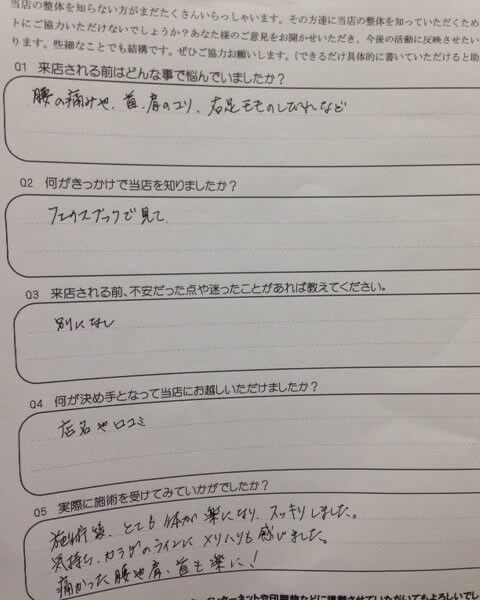 当店の整体を知らない方がまだたくさんいらっしゃいます。その方達に当店の整体を知っていただくため
トにご協力いただけないでしょうか？あなた様のご意見をお聞かせいただき、今後の活動に反映させたい
ります。些細なことでも結構です。ぜひご協力お願いします。（できるだけ具体的に書いていただけると助
Q1 来店される前はどんな事で悩んでいましたか？
腰の痛みや、首、肩のコリ、右足モモのしびれなど
Q2 何がきっかけで当店を知りましたか？
フェイスブックで見て、
Q3 来店される前、不安だった点や迷ったことがあれば教えてください。
別になし
Q4 何が決め手となって当店にお越しいただけましたか？
店名や口コミ
Q5 実際に施術を受けてみていかがでしたか？
施術後、とても体が楽になり、スッキリしました。
気持ち、カラダのラインにメリハリも感じました。
痛かった腰や肩、首も楽に！
インターネットや印刷物などに掲載させていただいてもよろしいでし